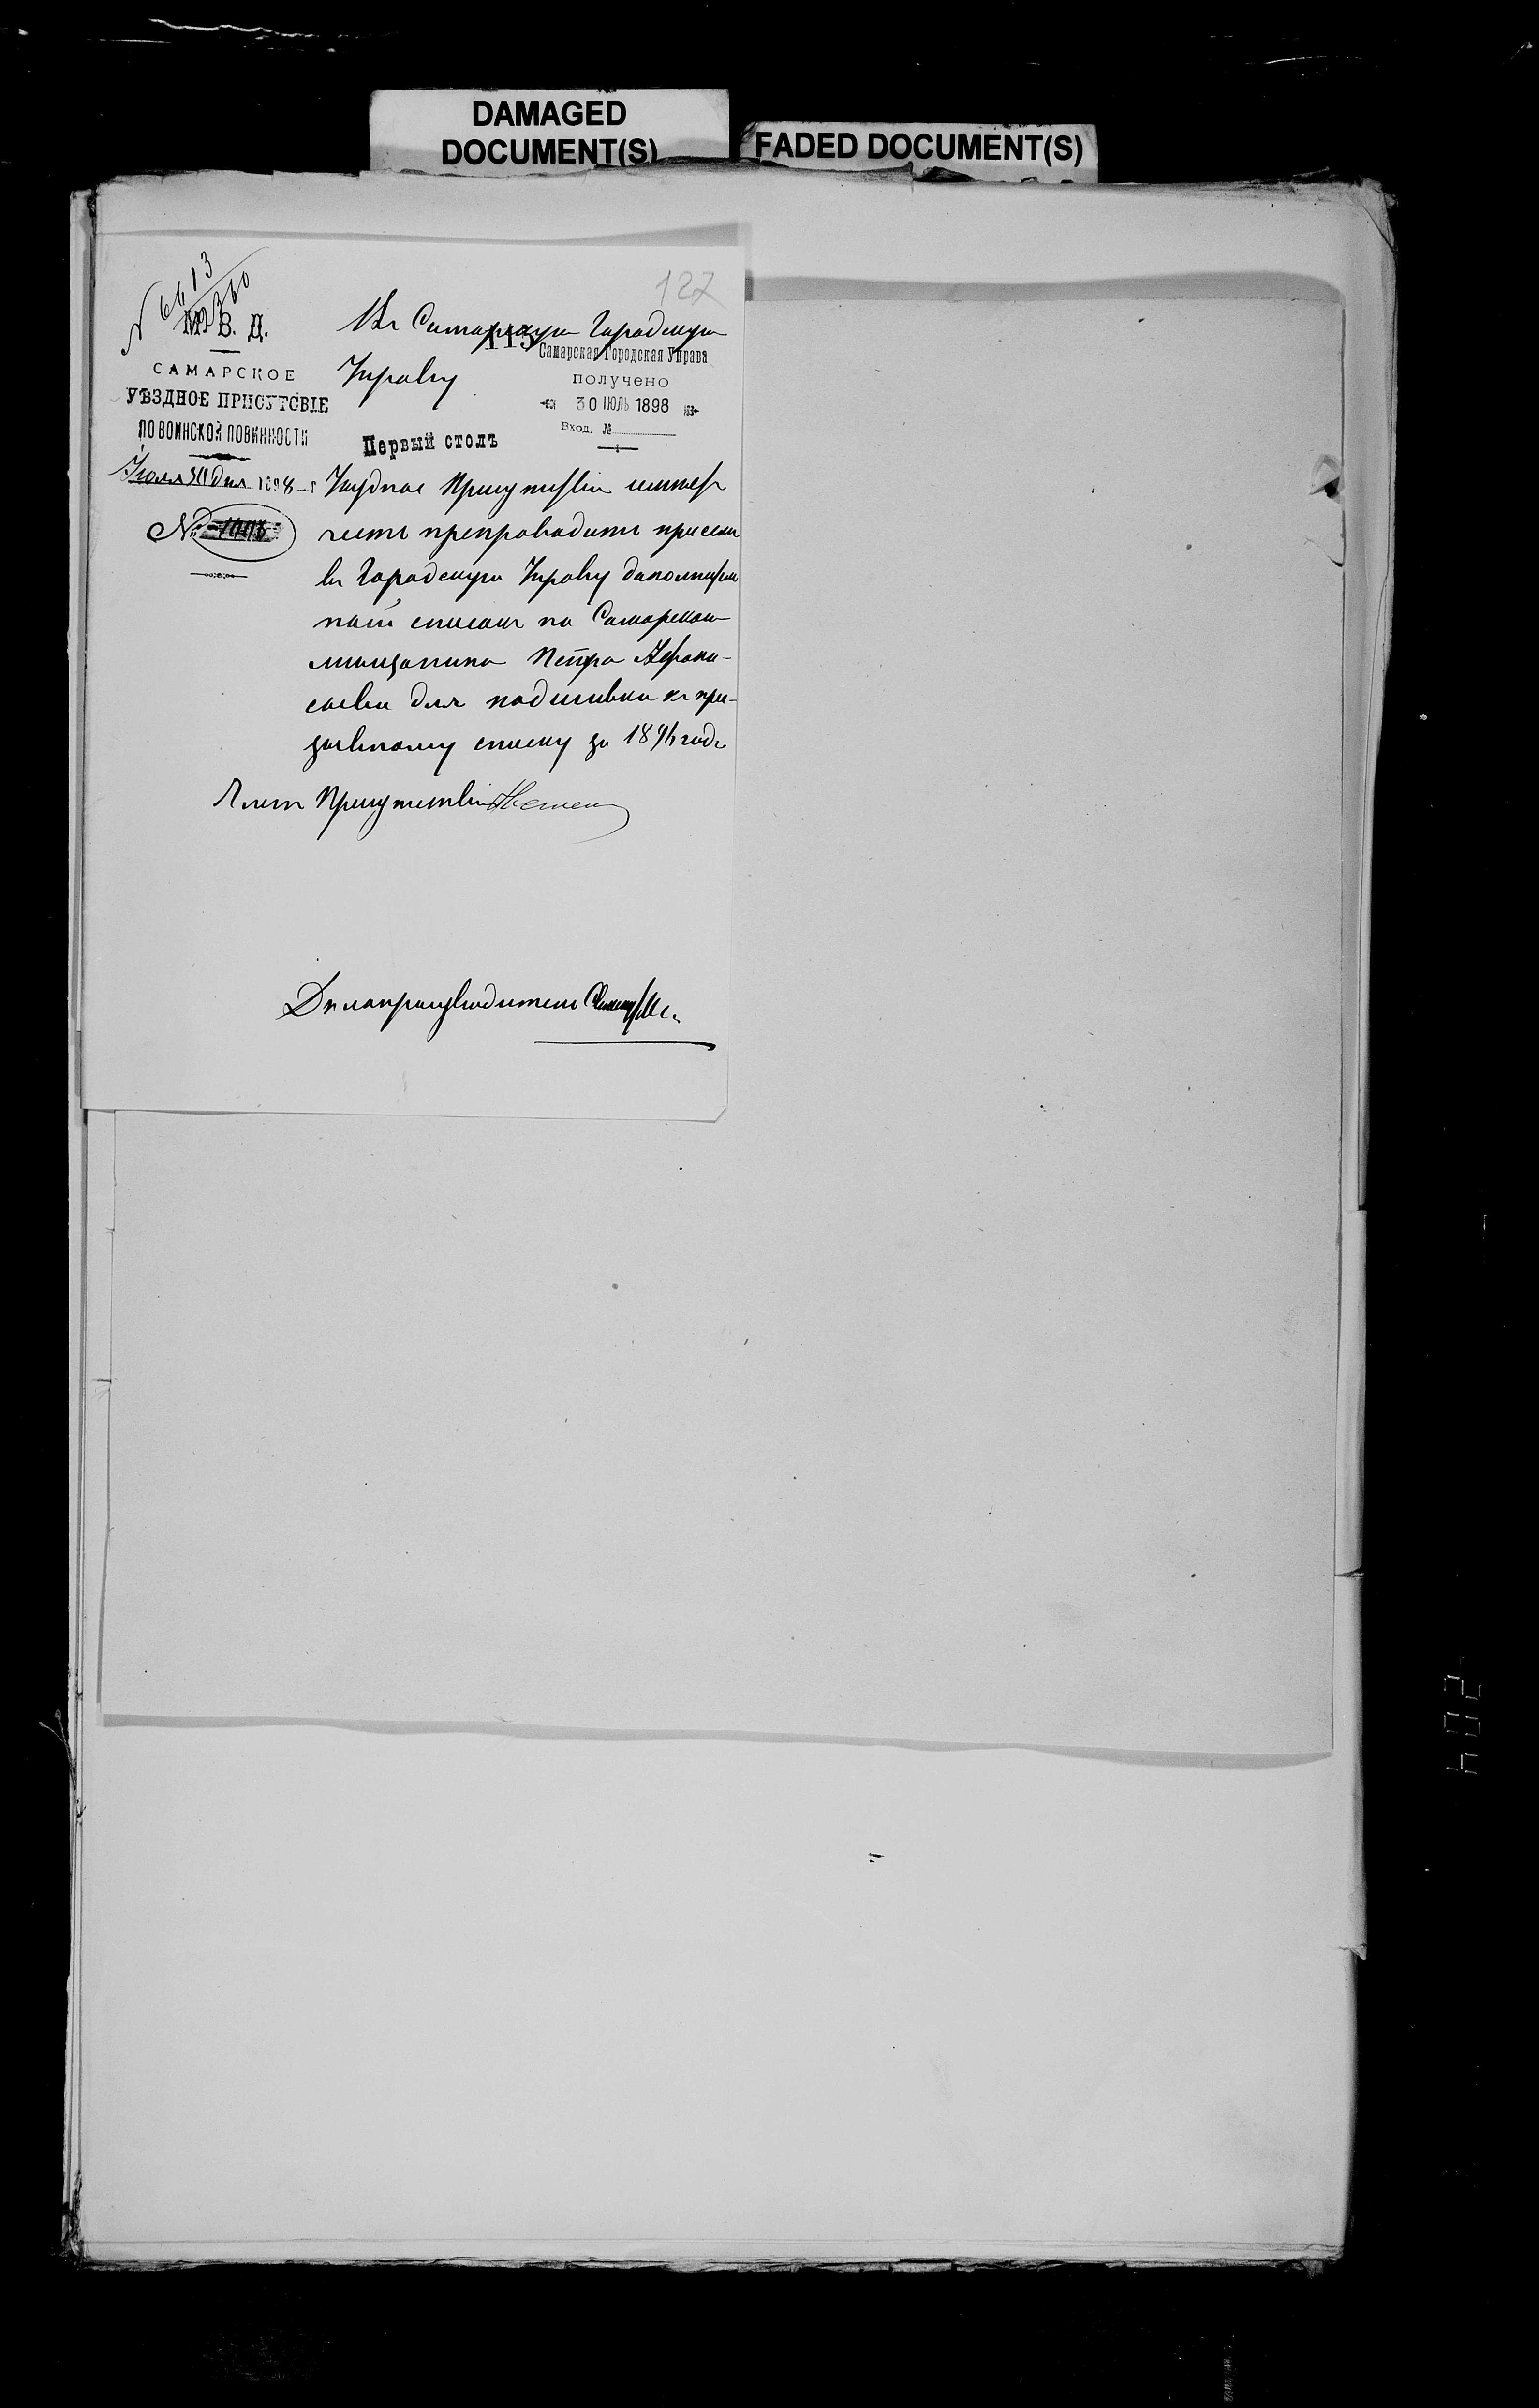 DAMAGED
DOCUMENT(S)
FADED DOCUMENT(S)
127
№ 6613
М. В. Д.
САМАРСКОЕ
УѢЗДНОЕ ПРИСУТСВІЕ
ПО ВОИНСКОЙ ПОВИННОСТИ
Іюля 30 дня 1898 г
№
Въ Самарскую Городскую
115
Управу
Самарская Городская Управа
получено
30 ІЮЛЬ 1898
Вход. №
Первый столъ
Уѣздное Присутствіе имѣетъ
честь препроводить при семъ
въ Городскую Управу дополнитель
ный списокъ на Самарскаго
мѣщанина Петра Афона-
сьева для подшивки къ при-
зывному списку за год
Членъ Присутствія
Дѣлопроизводитель
204